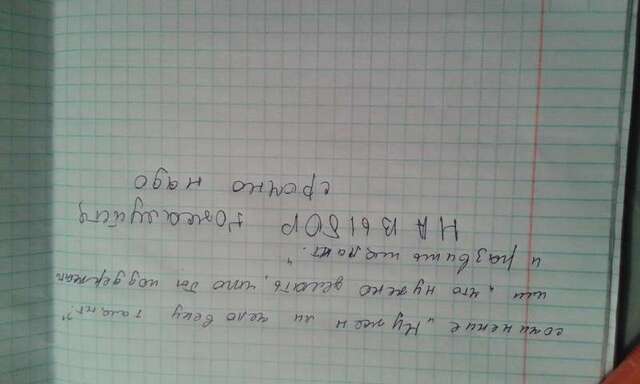 сочинение „Нужен ли человеку талант?"
или „что нужно делать, что бы поддержат
и развить талант."
НА ВЫБОР Пожалуйста
срочно надо